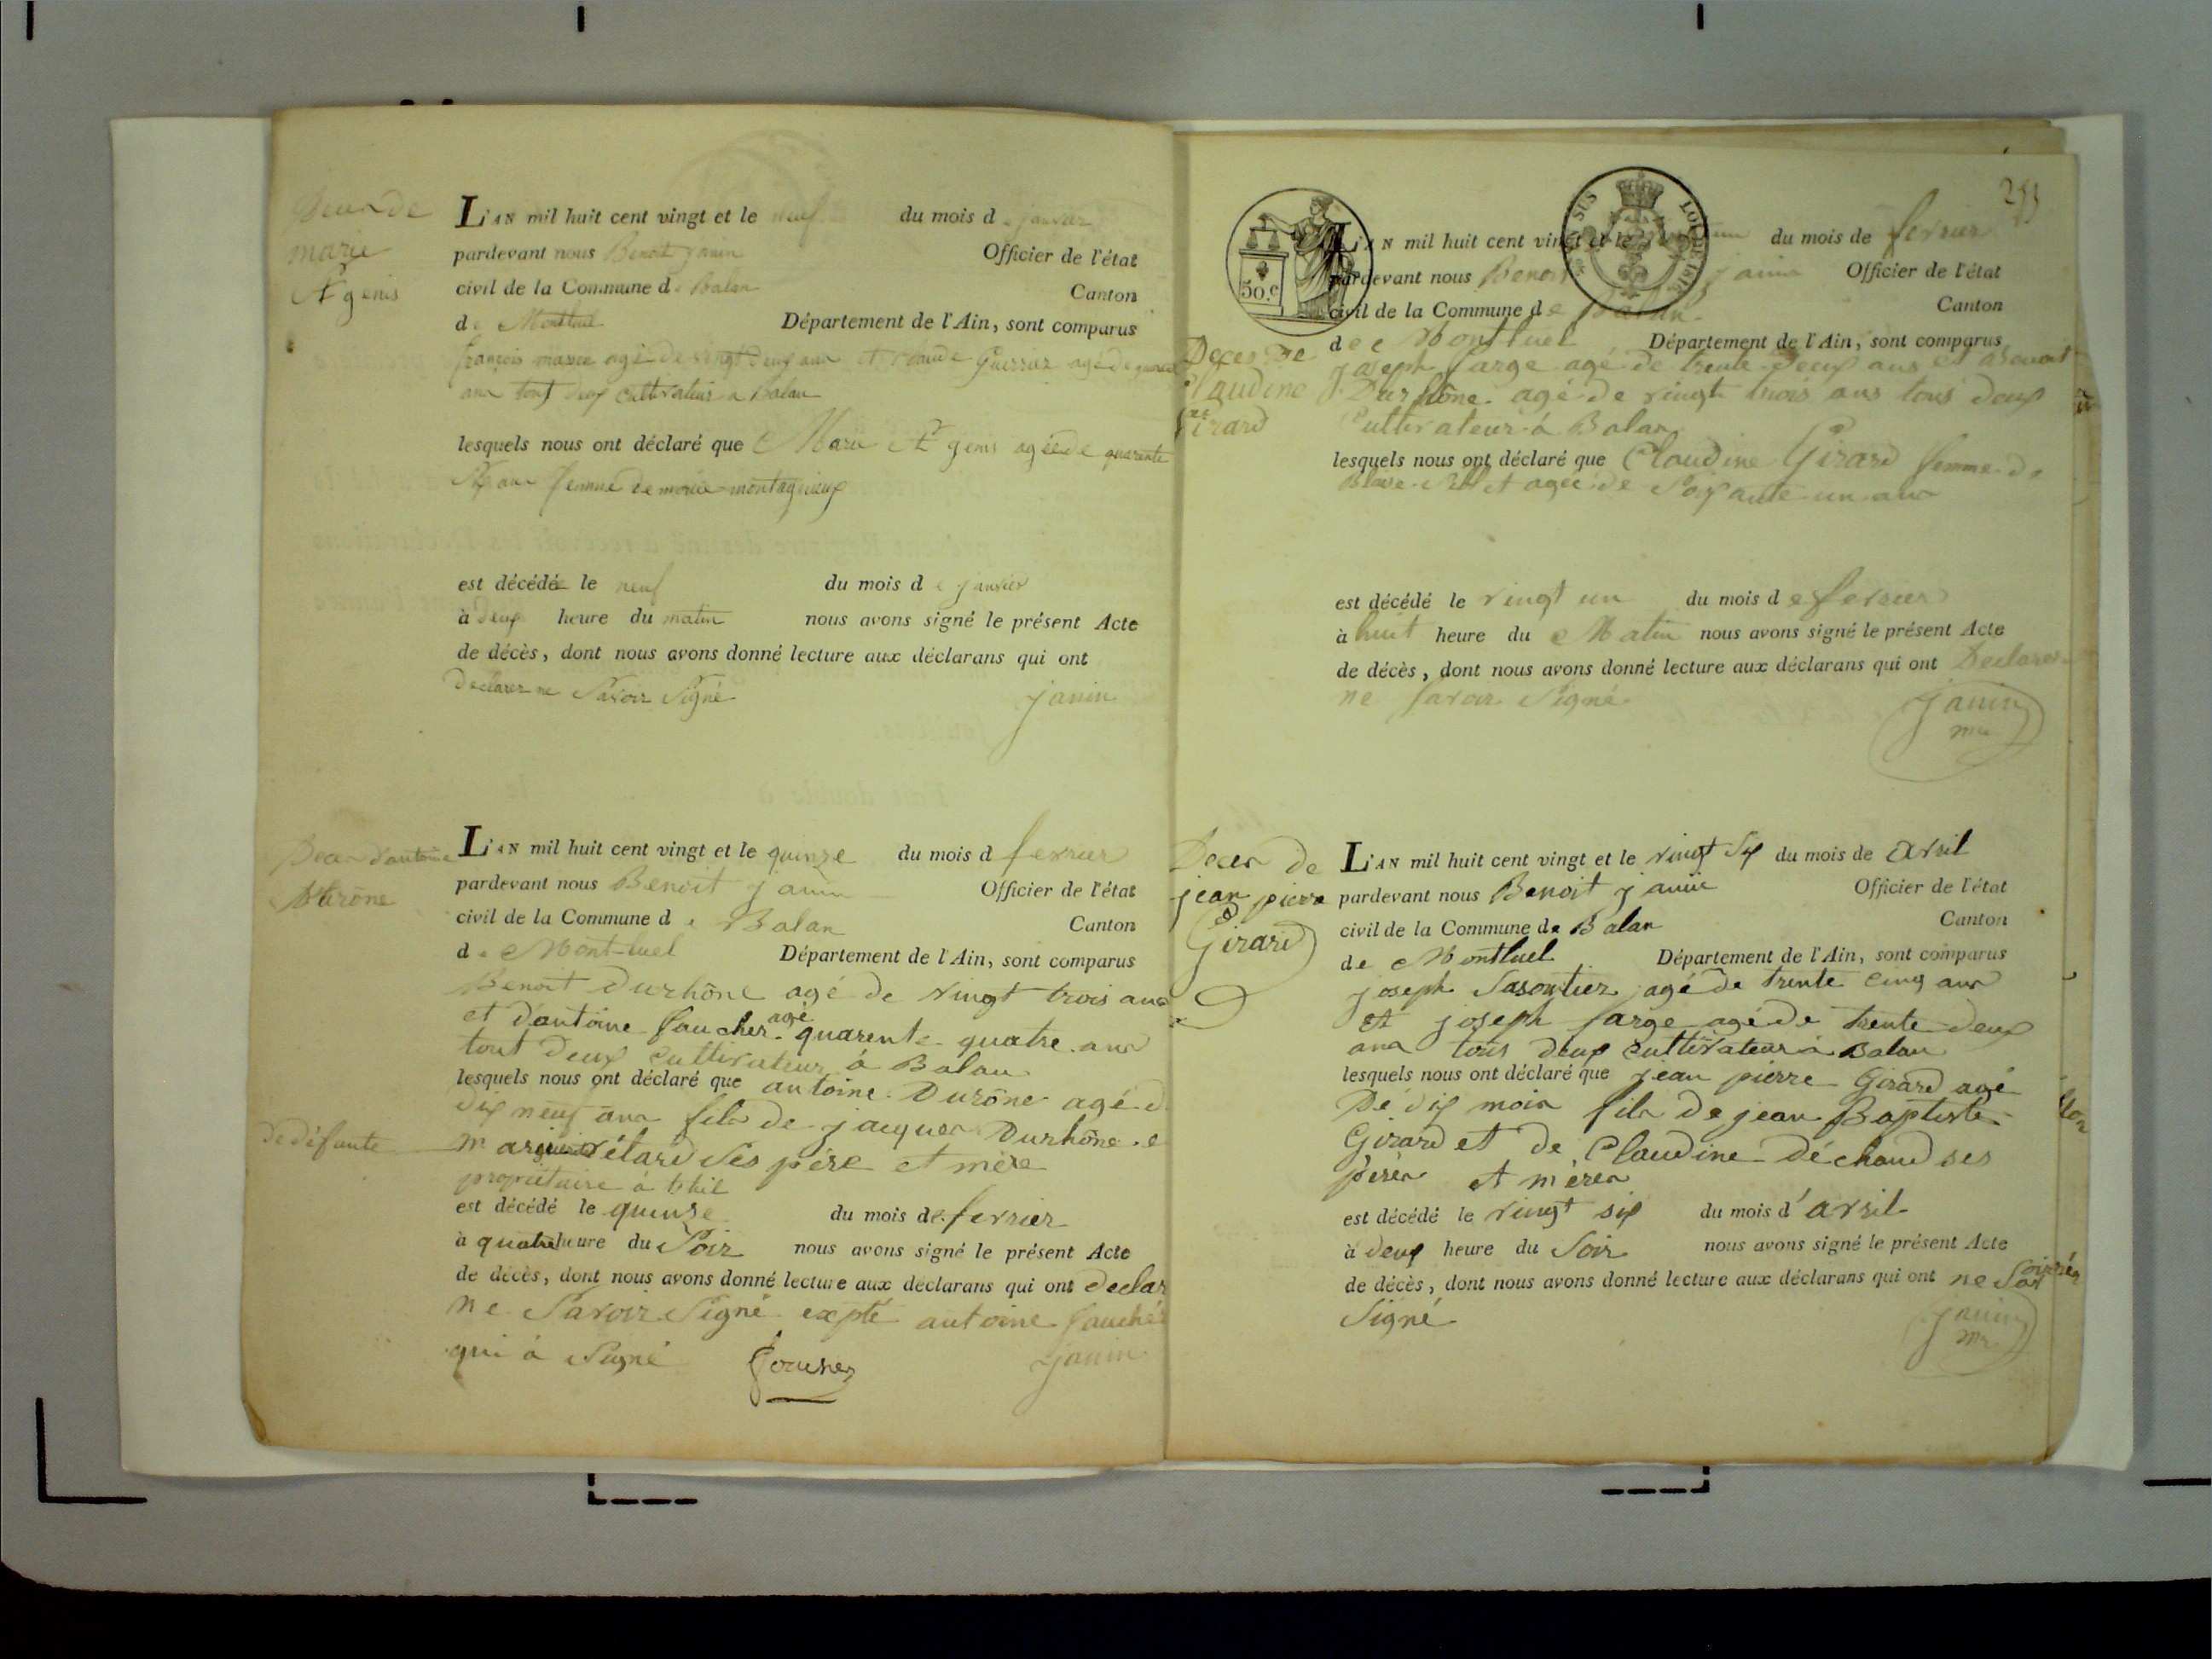 Deces de
marie
St genis
L'AN mil huit cent vingt et le neuf du mois de janvier
pardevant nous Benoit janin Officier de l'état
civil de la Commune de Balan Canton
de Montluel Département de l'Ain, sont comparus
françois agé de vingt deux ans et claude Guerrier agé de
ans tout deux cultivateur a Balan
lesquels nous ont déclaré que Marie St genis agée de quarante
ans femme de montagnieux
est décédée le neuf du mois de janvier
à deux heure du matin nous avons signé le présent Acte
de décès, dont nous avons donné lecture aux déclarans qui ont
declarer ne Savoir Signé
janin
Deces d'antoine
Durône
L'AN mil huit cent vingt et le quinze du mois d fevrier
pardevant nous Benoit janin Officier de l'état
civil de la Commune de Balan Canton
de Mont-luel Département de l'Ain, sont comparus
Benoit Durhône agé de vingt trois ans
et d'antoine faucher agé quarente quatre ans
tout deux cultivateur à Balan
lesquels nous ont déclaré que antoine Durône agé d
dix neuf ans fils de jacques Durhône e
de défunte
ses père et mère
propriétaire à thil
est décédé le quinze du mois de fevrier
à quatre heure du Soir nous avons signé le présent Acte
de décès, dont nous avons donné lecture aux déclarans qui ont declar
ne Savoir Signé expté antoine fauché
qui à Signé
janin
253
50.c
LOUIS XVIII
L'AN mil huit cent vingt et le un du mois de fevrier
pardevant nous Benoit janin Officier de l'état
civil de la Commune de Balan Canton
de Montluel Département de l'Ain, sont comparus
Deces De
Claudine
Girard
joseph farge agé de trente deux ans et Benoit
Durhône agé de vingt trois ans tous deux
Cultivateur à Balan
lesquels nous ont déclaré que Claudine Girard femme de
agée de Soixante un ans
est décédé le vingt un du mois de fevrier
à huit heure du Matin nous avons signé le présent Acte
de décès, dont nous avons donné lecture aux déclarans qui ont Declarer
ne savoir Signé
janin
mre
Deces de
jean pierre
Girard
L'AN mil huit cent vingt et le vingt Six du mois de avril
pardevant nous Benoit janin Officier de l'état
civil de la Commune de Balan Canton
de Montluel Département de l'Ain, sont comparus
joseph agé de trente cinq ans
et joseph farge agé de trente deux
ans tous deux cultivateur à Balan
lesquels nous ont déclaré que jean pierre Girard agé
De dix mois fils de jean Baptiste
Girard et de Claudine Déchaud ses
pères et mères
est décédé le vingt six du mois d'avril
à deux heure du Soir nous avons signé le présent Acte
de décès, dont nous avons donné lecture aux déclarans qui ont ne
Signé
janin
mre